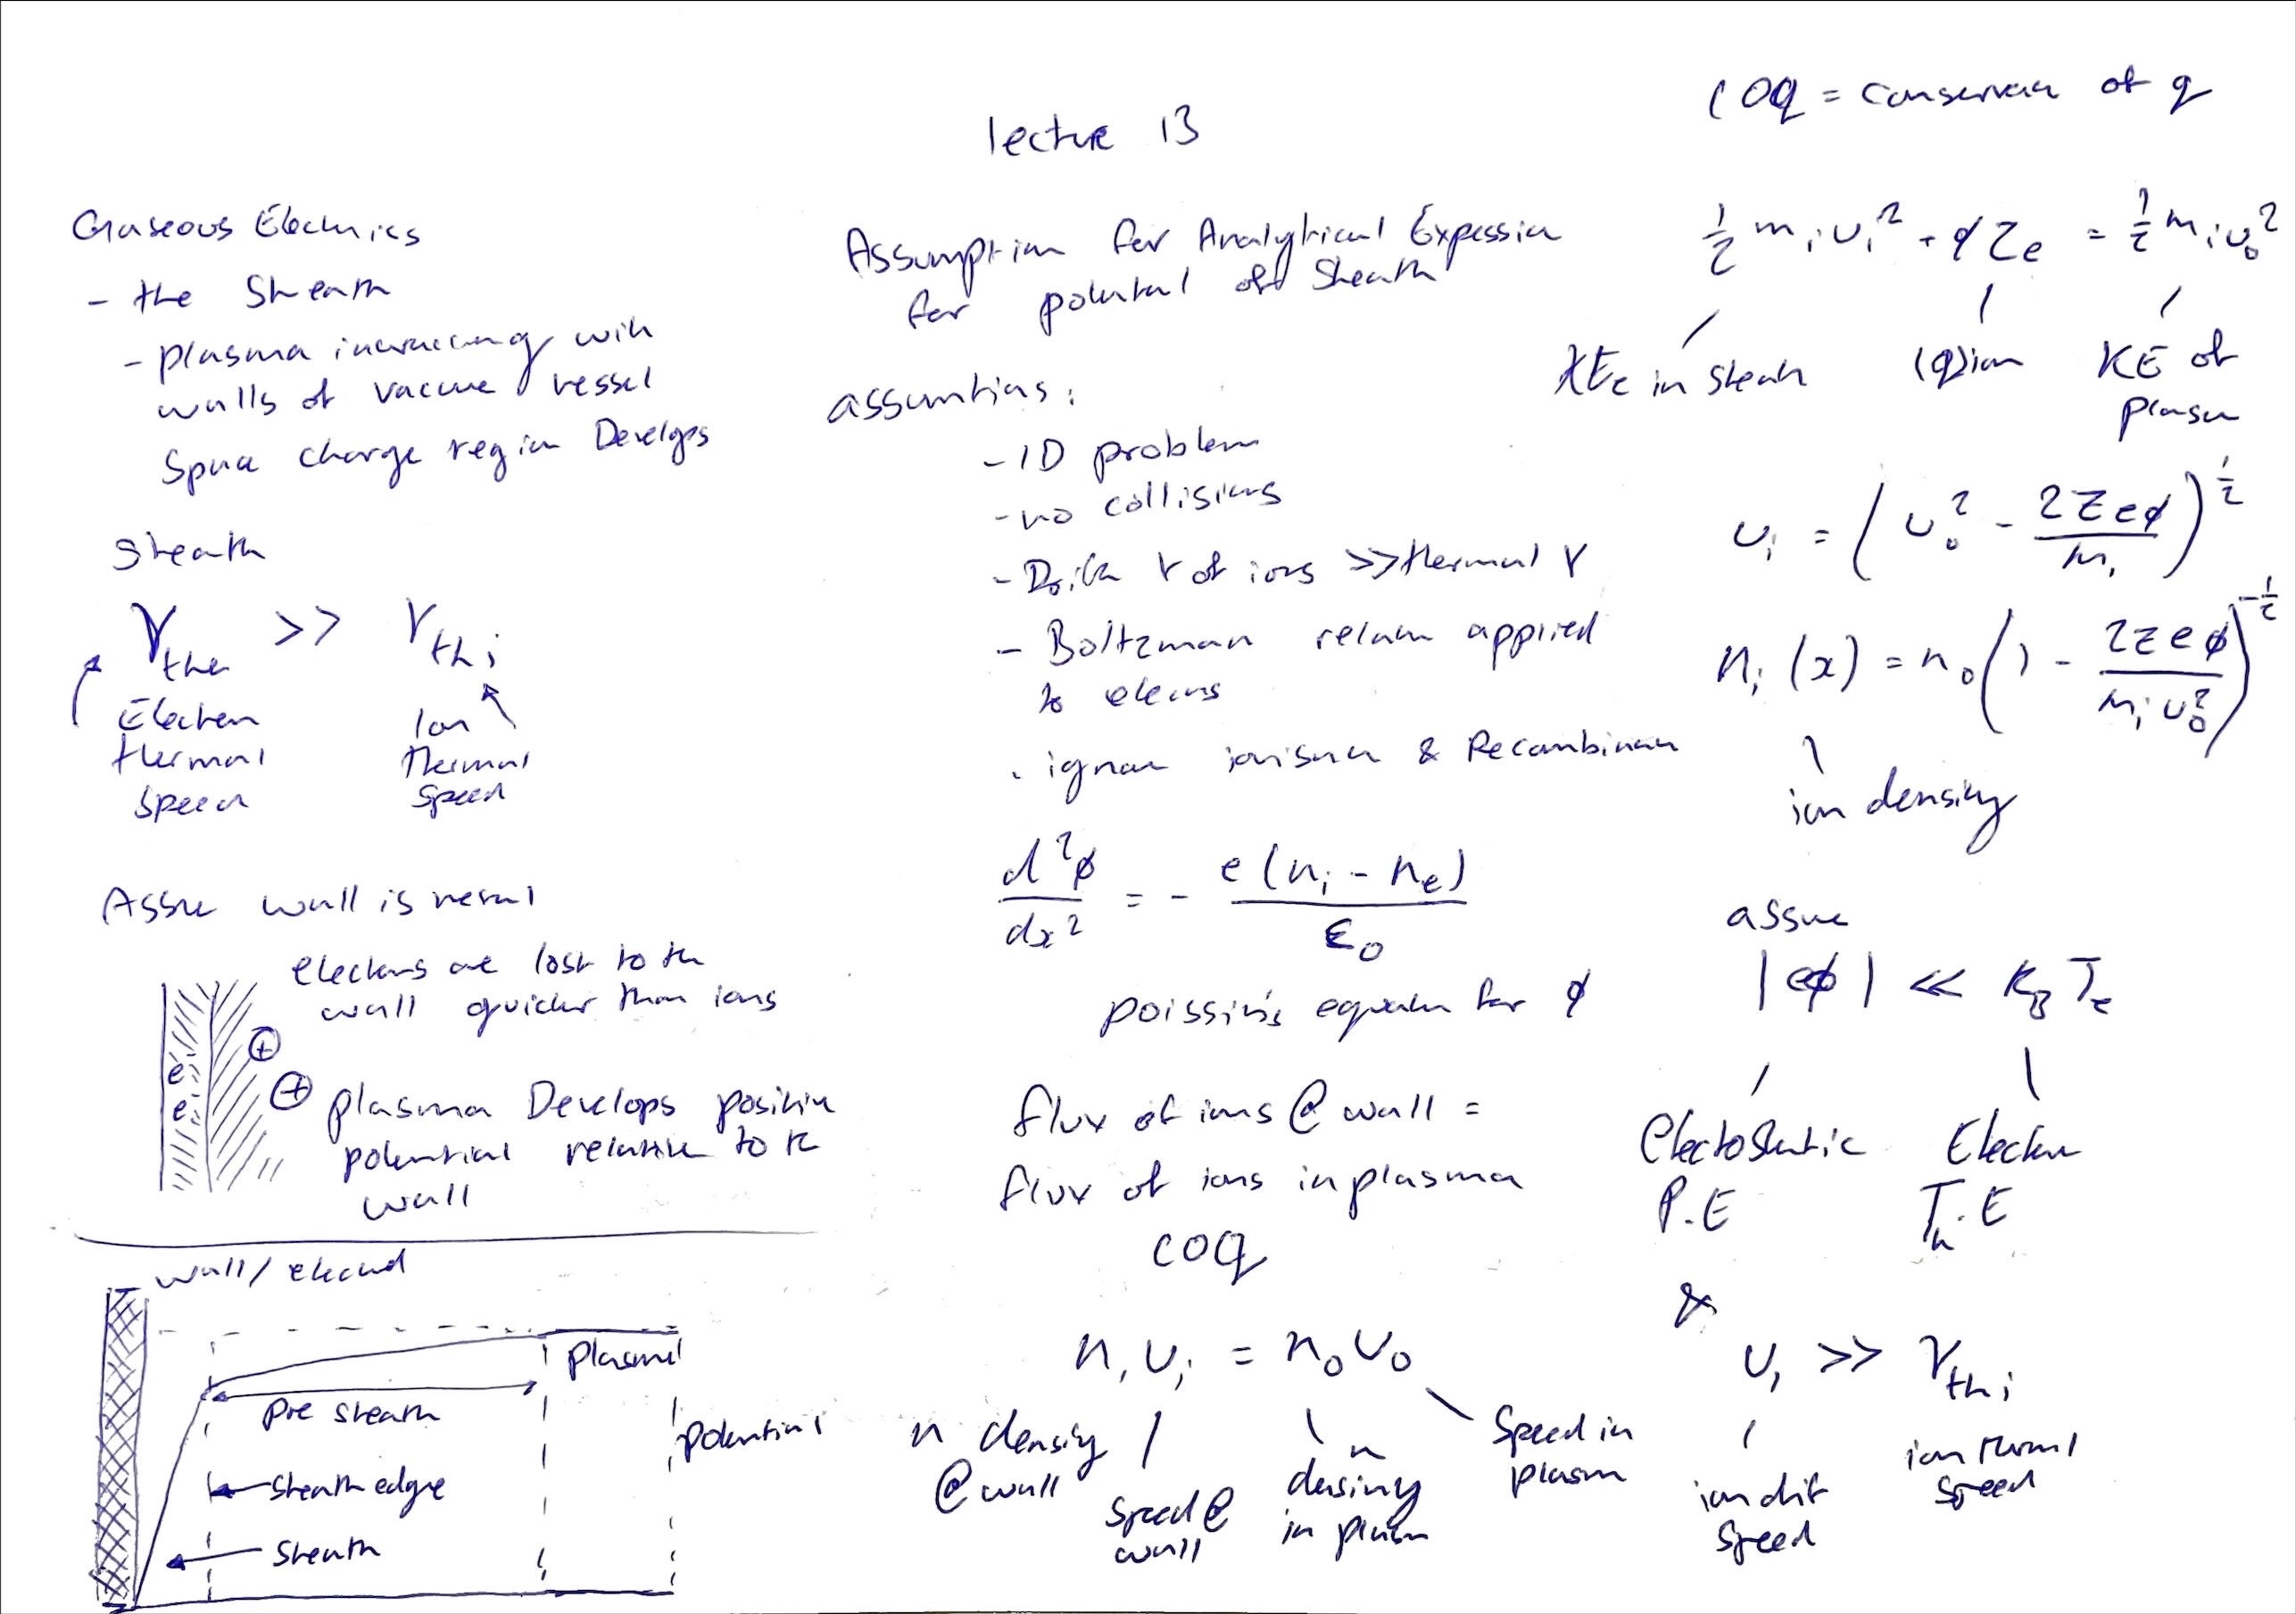 lecture 13
Gaseous Electronics
- the Sheath
- plasma interacting with
walls of vacuum vessel
Space charge region Develops
Sheath
V_the >> V_thi
Electron
thermal
speed
Ion
thermal
speed
Assume wall is metal
electrons are lost to the
wall quicker than ions
e⁻
e⁻
+
+
plasma Develops positive
potential relative to the
wall
wall/ electrode
plasma
pre sheath
potential
sheath edge
sheath
Assumption for Analytical Expression
for potential of Sheath
assumtions:
- 1D problem
- no collisions
- Drift V of ions >> thermal V
- Boltzman relation applied
to electrons
- ignore ionisation & Recombination
d²φ/dx² = - e(n_i - n_e)/ε_0
poission's equation for φ
flux of ions @ wall =
flux of ions in plasma
COq
n_i υ_i = n_0 υ_0
n density
@ wall
speed @
wall
n
density
in plasma
Speed in
plasma
COq = conservation of q
½ m_i υ_i² + φZe = ½ m_i υ_0²
KE in sheath
(q)ion
KE of
plasma
υ_i = (υ_0² - 2Zeφ/m_i)^½
n_i(x) = n_0(1 - 2zeφ/m_i υ_0²)^-½
ion density
assume
|eφ| << k_B T_e
Electostatic
P.E
Electron
Th.E
&
υ_i >> V_thi
ion drift
speed
ion thermal
speed